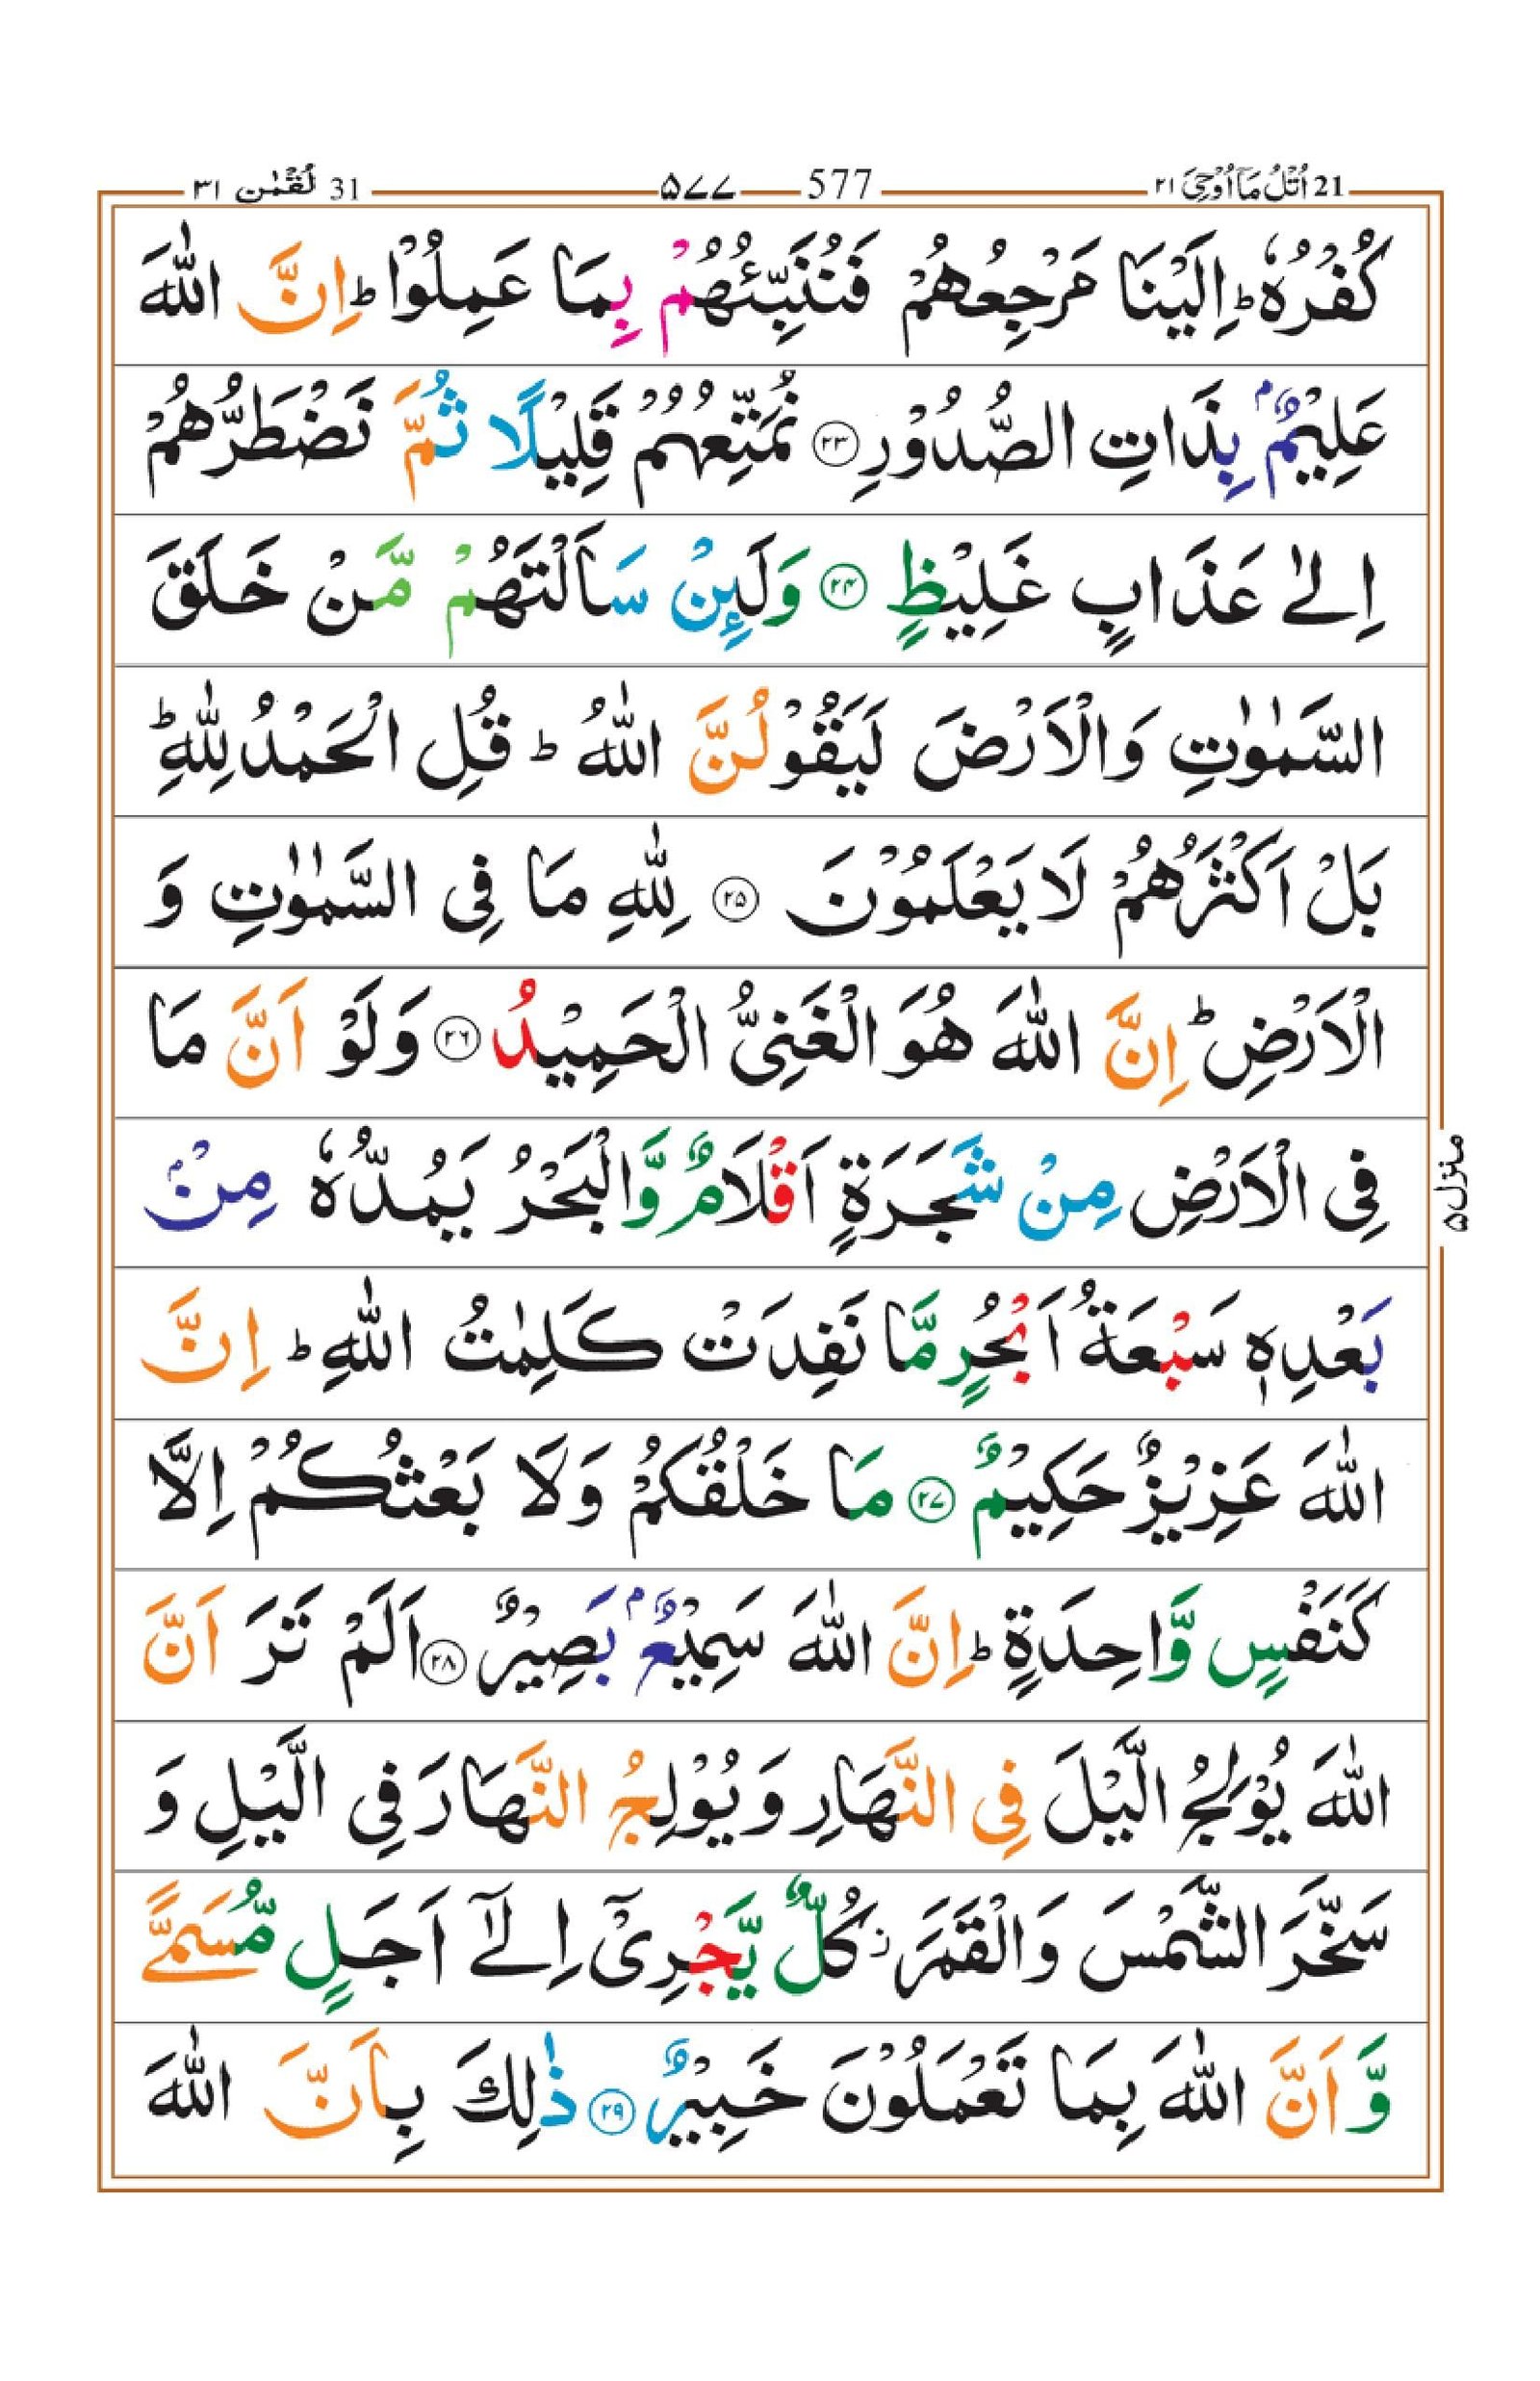 21 اُتْلُ مَاۤ اُوْحِیَ ٢١ 577 ٥٧٧ 31 لُقْمٰن ٣١
كُفْرُهٗ ؕ اِلَیْنَا مَرْجِعُهُمْ فَنُنَبِّئُهُمْ بِمَا عَمِلُوْا ؕ اِنَّ اللّٰهَ
عَلِیْمٌۢ بِذَاتِ الصُّدُوْرِ ﴿٢٣﴾ نُمَتِّعُهُمْ قَلِیْلًا ثُمَّ نَضْطَرُّهُمْ
اِلٰی عَذَابٍ غَلِیْظٍ ﴿٢٤﴾ وَلَىِٕنْ سَاَلْتَهُمْ مَّنْ خَلَقَ
السَّمٰوٰتِ وَالْاَرْضَ لَیَقُوْلُنَّ اللّٰهُ ؕ قُلِ الْحَمْدُ لِلّٰهِ ؕ
بَلْ اَكْثَرُهُمْ لَا یَعْلَمُوْنَ ﴿٢٥﴾ لِلّٰهِ مَا فِی السَّمٰوٰتِ وَ
الْاَرْضِ ؕ اِنَّ اللّٰهَ هُوَ الْغَنِیُّ الْحَمِیْدُ ﴿٢٦﴾ وَلَوْ اَنَّ مَا
فِی الْاَرْضِ مِنْ شَجَرَةٍ اَقْلَامٌ وَّالْبَحْرُ یَمُدُّهٗ مِنْۢ
بَعْدِهٖ سَبْعَةُ اَبْحُرٍ مَّا نَفِدَتْ كَلِمٰتُ اللّٰهِ ؕ اِنَّ
اللّٰهَ عَزِیْزٌ حَكِیْمٌ ﴿٢٧﴾ مَا خَلْقُكُمْ وَلَا بَعْثُكُمْ اِلَّا
كَنَفْسٍ وَّاحِدَةٍ ؕ اِنَّ اللّٰهَ سَمِیْعٌۢ بَصِیْرٌ ﴿٢٨﴾ اَلَمْ تَرَ اَنَّ
اللّٰهَ یُوْلِجُ الَّیْلَ فِی النَّهَارِ وَیُوْلِجُ النَّهَارَ فِی الَّیْلِ وَ
سَخَّرَ الشَّمْسَ وَالْقَمَرَ ؗ كُلٌّ یَّجْرِیْۤ اِلٰۤی اَجَلٍ مُّسَمًّی
وَّ اَنَّ اللّٰهَ بِمَا تَعْمَلُوْنَ خَبِیْرٌ ﴿٢٩﴾ ذٰلِكَ بِاَنَّ اللّٰهَ
منزل ۵